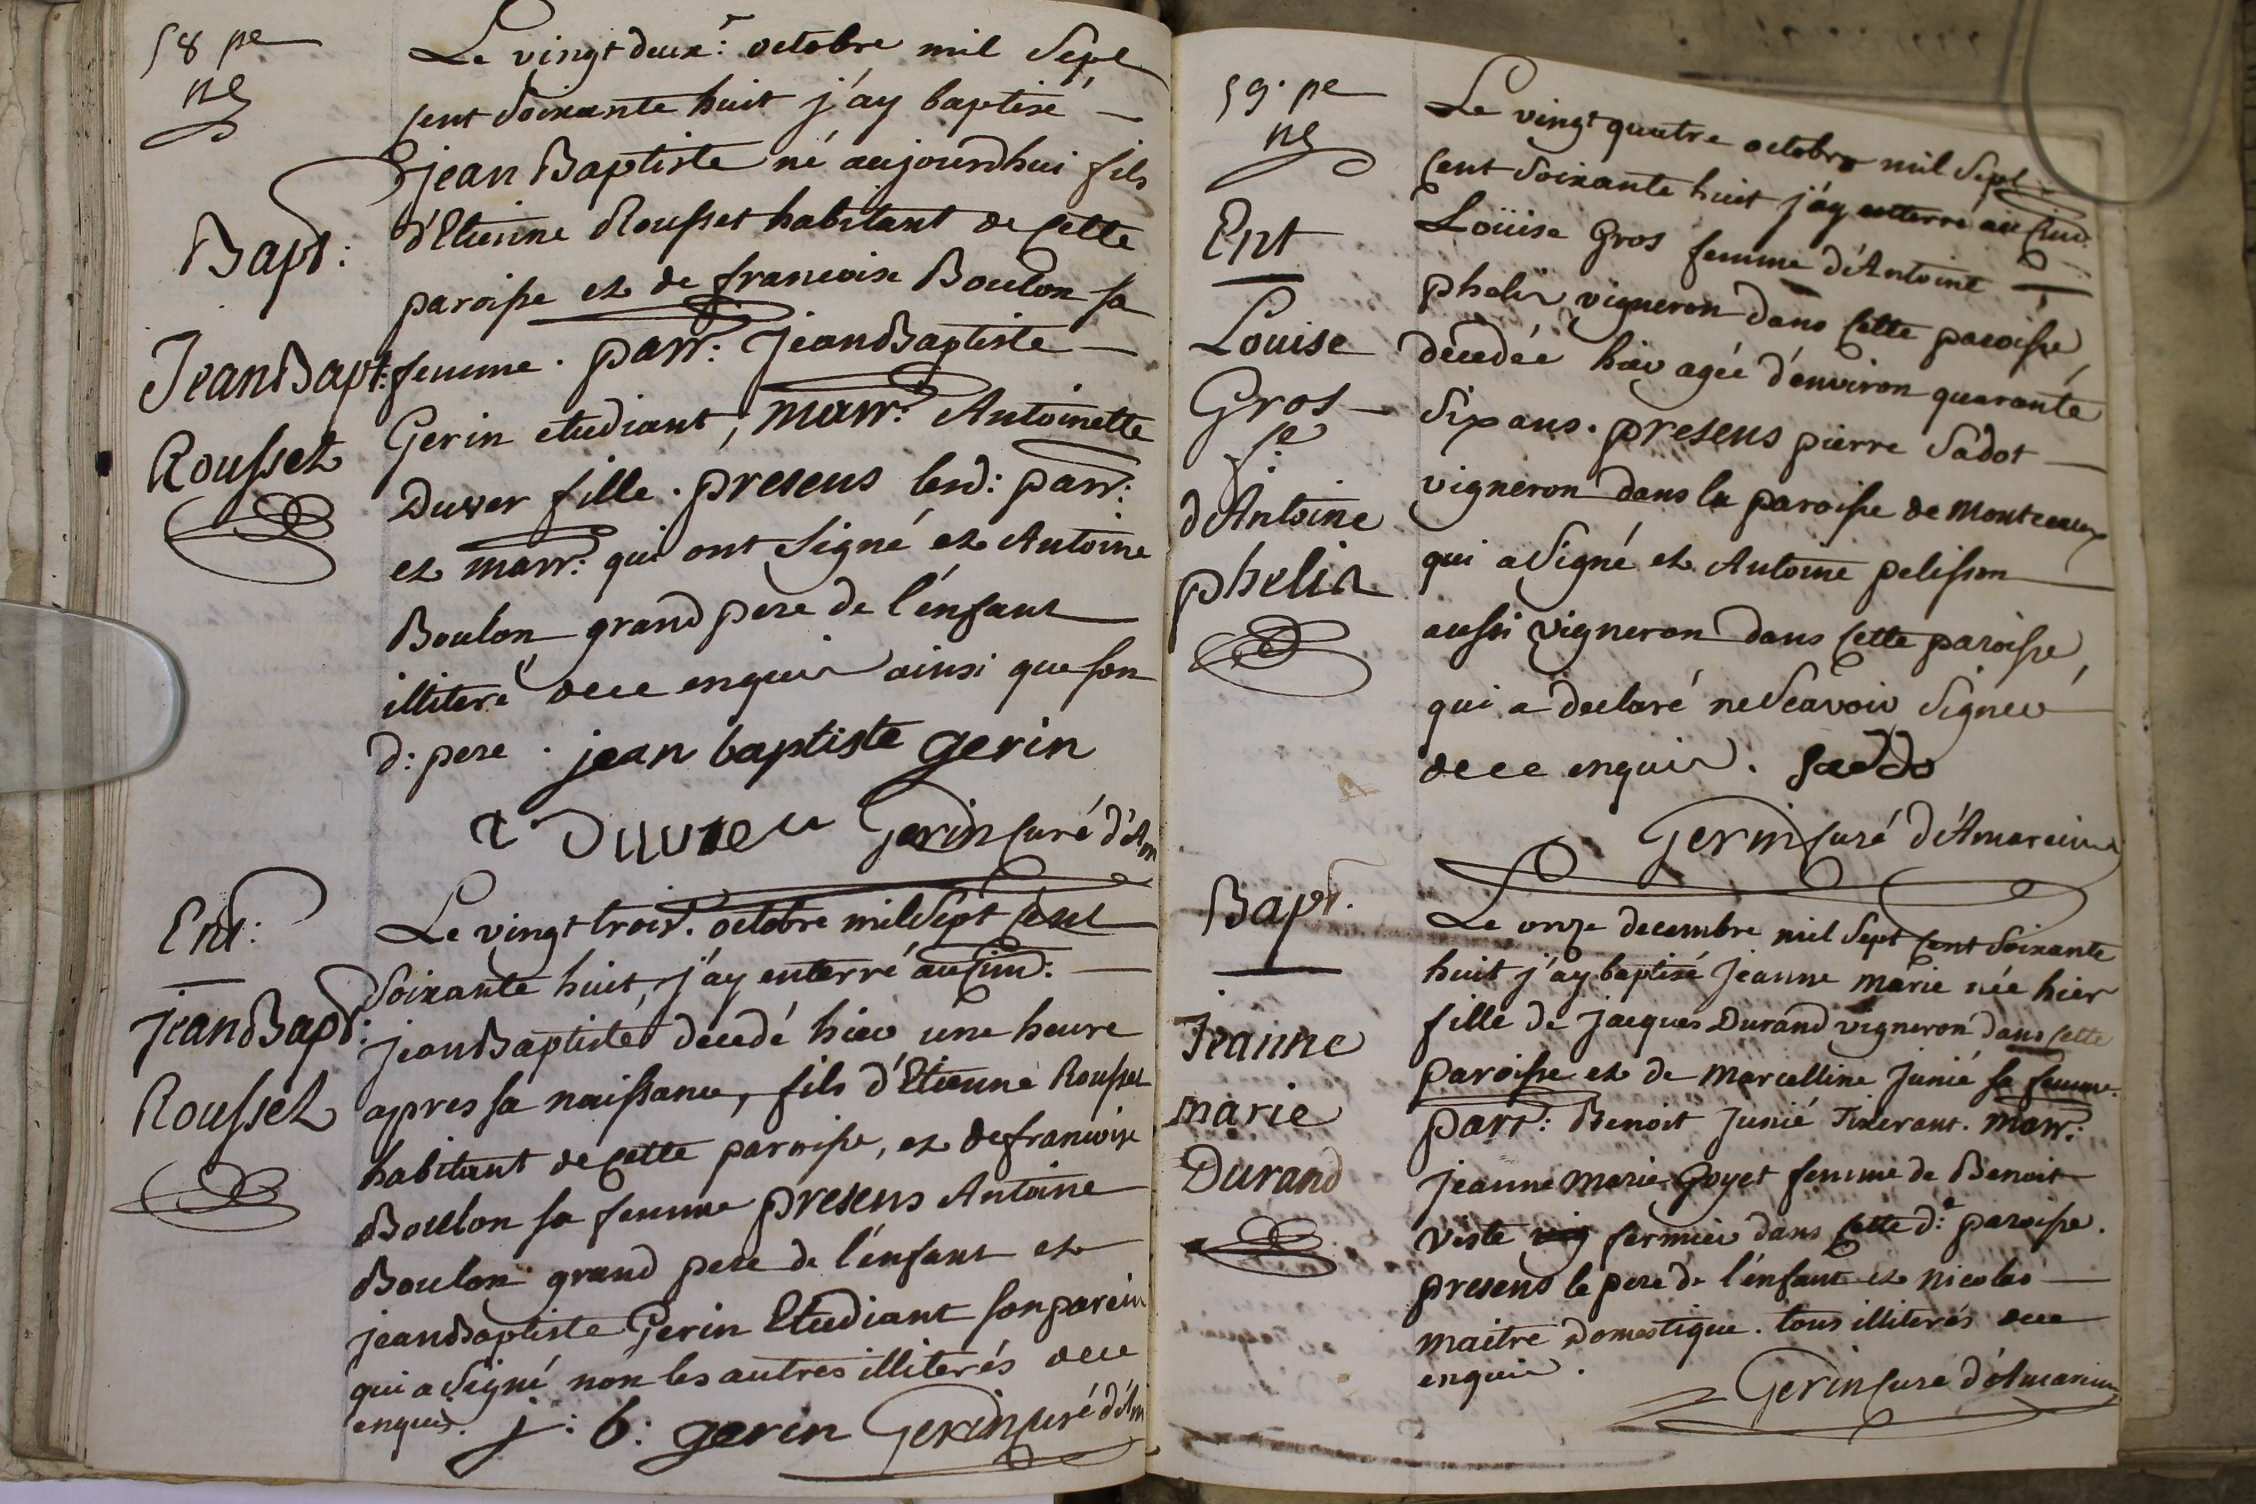 58 pe
Le vingt deux.e octobre mil Sept
cent Soixante huit j'ay baptisé
jean Baptiste né aujourdhui fils
Bapt:
d'Etienne Rousset habitant de Cette
paroisse et de francoise Boulon sa
JeanBapt:
femme. parr: jean Baptiste
Gerin etudiant, marr: Antoinette
Rousset
Duver fille. presens lesd: parr:
et marr: qui ont Signé et Antoine
Boulon grand pere de l'enfant
illiteré de ce enquis ainsi que son
d: pere. jean baptiste gerin
Gerin Curé d'Am
Ent:
Le vingt trois.e octobre mil Sept Cent
Soixante huit, j'ay enterré au Cim:
jeanBapt:
jean Baptiste decedé hier une heure
Rousset
apres sa naissance, fils d'Etienne Rousset
habitant de Cette paroisse, et de francoise
Boulon sa femme presens Antoine
Boulon grand pere de l'enfant et
jean Baptiste Gerin Etudiant son parein
qui a Signé non les autres illiterés de ce
enquis. j: b: gerin Gerin Curé d'Am
59. pe
Le vingt quatre octobre mil Sept
Cent Soixante huit j'ay enterré au Cim.
Ent
Loüise Gros femme d'Antoine
phelix vigneron dans Cette paroisse,
Louise
decedée hier agée d'environ quarante
Gros
Six ans. presens pierre Sadot
fe
vigneron dans la paroisse de Montceaux
d'Antoine
qui a Signé et Antoine pelisson
phelix
aussi vigneron dans Cette paroisse,
qui a declaré ne Scavoir Signer
de ce enquis. Saddo
Gerin Curé d'Amareins
Bapt.
Le onze decembre mil Sept Cent Soixante
huit j'ay baptisé Jeanne marie née hier
Jeanne
fille de jacques Durand vigneron dans Cette
paroisse et de Marcelline Junié sa femme.
marie
parr: Benoit Junié Tixerant. Marr:
Durand
jeanne Marie Goyet femme de Benoit
Viste fermier dans Cette d.e paroisse.
presens le pere de l'enfant et Nicolas
maitre Domestique. tous illiterés de ce
enquis.
Gerin Curé d'Amareins